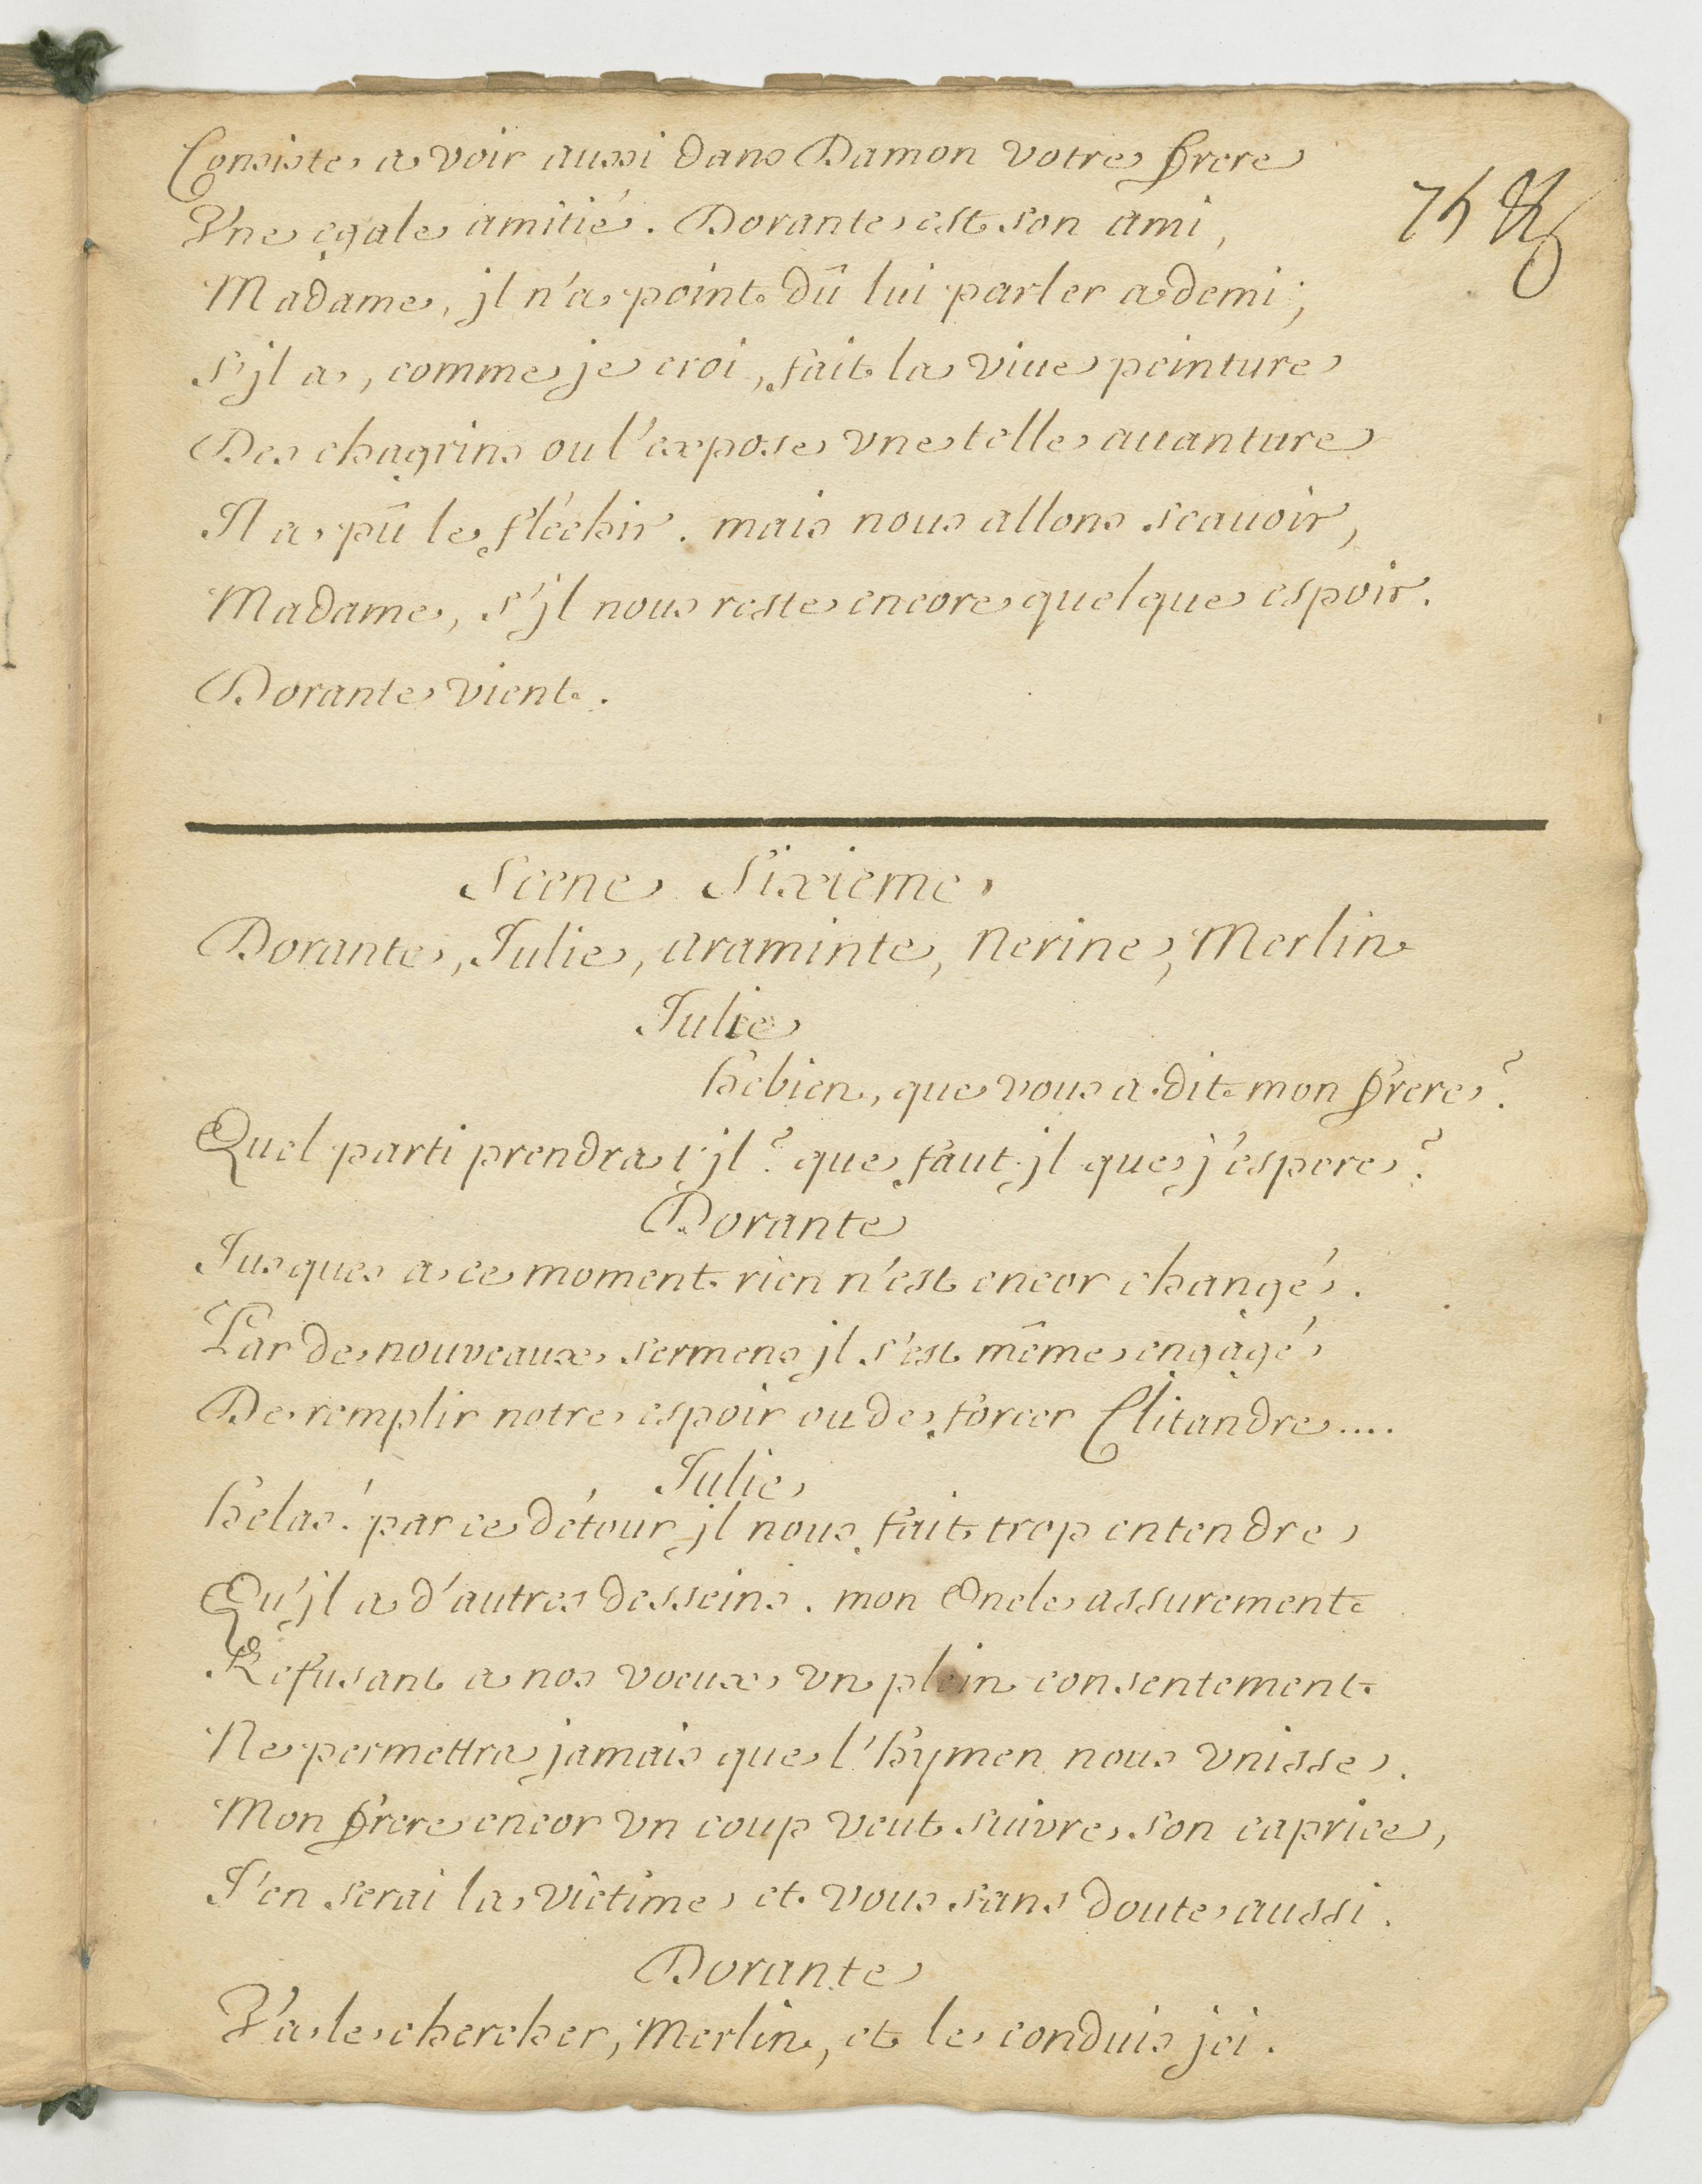 Consiste a voir aussi dans Damon votre frere
Une egale amitié. Dorante est son ami,
Madame, jl n'a point dû lui parler a demi;
S'jl a, comme je croi, fait la viue peinture
Des chagrins ou l'expose vne telle auanture
Il a pû le fléchir. mais nous allons scauoir,
Madame, s'jl nous reste encore quelque espoir.
Dorante vient.
Scene Sixieme
Dorante, Julie, araminte, Nerine, Merlin
Julie
hébien, que vous a dit mon frere?
Quel parti prendra t'jl? que faut jl que j'espere?
Dorante
Jusques a ce moment rien n'est encor changé.
Par de nouveaux sermens jl s'est même engagé
De remplir notre espoir ou de forcer Clitandre....
Julie
hélas! par ce détour jl nous fait trop entendre
Qu'jl a d'autres desseins. mon Oncle assurement
Refusant a nos voeux vn plein consentement
Ne permettra jamais que l'hymen nous vnisse.
Mon frere encor vn coup veut suivre son caprice,
J'en serai la victime et vous sans doute aussi.
Dorante
Va le chercher, Merlin, et le conduis jci.